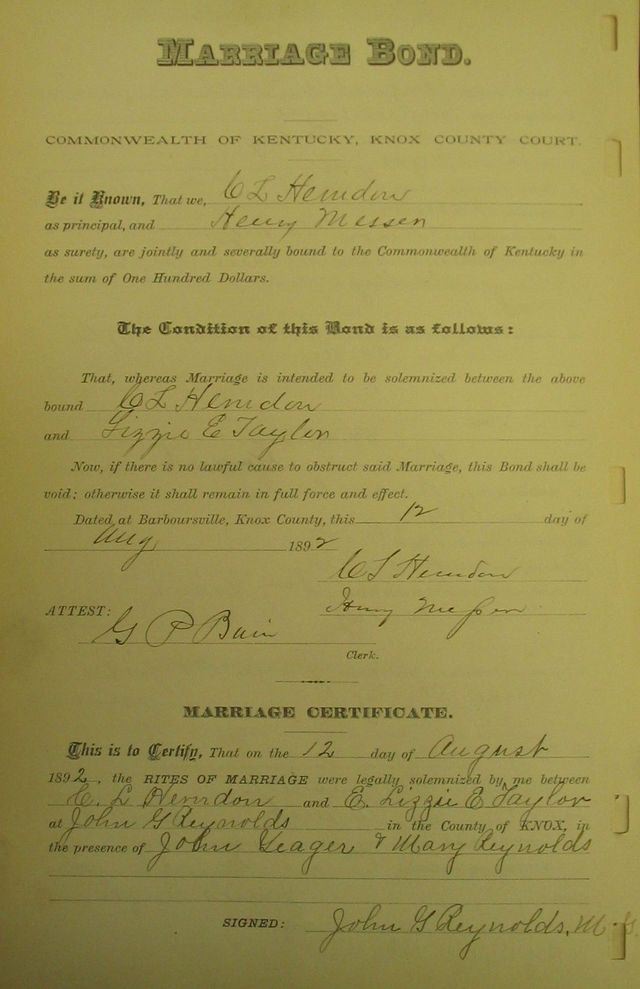 MARRIAGE BOND.
COMMONWEALTH OF KENTUCKY, KNOX COUNTY COURT.
Be it Known, That we, C L Herndon
as principal, and Henry Messer
as surety, are jointly and severally bound to the Commonwealth of Kentucky in
the sum of One Hundred Dollars.
The Condition of this Bond is as follows:
That, whereas Marriage is intended to be solemnized between the above
bound C L Herndon
and Lizzie E Taylor
Now, if there is no lawful cause to obstruct said Marriage, this Bond shall be
void; otherwise it shall remain in full force and effect.
Dated at Barboursville, Knox County, this 12 day of
Aug 1892
C L Herndon
ATTEST: Henry Messer
G P Bain
Clerk.
MARRIAGE CERTIFICATE.
This is to Certify, That on the 12 day of August
1892, the RITES OF MARRIAGE were legally solemnized by me between
C. L Herndon and E. Lizzie E Taylor
at John G Reynolds in the County of KNOX, in
the presence of John Seager & Mary Reynolds
SIGNED: John G Reynolds, M